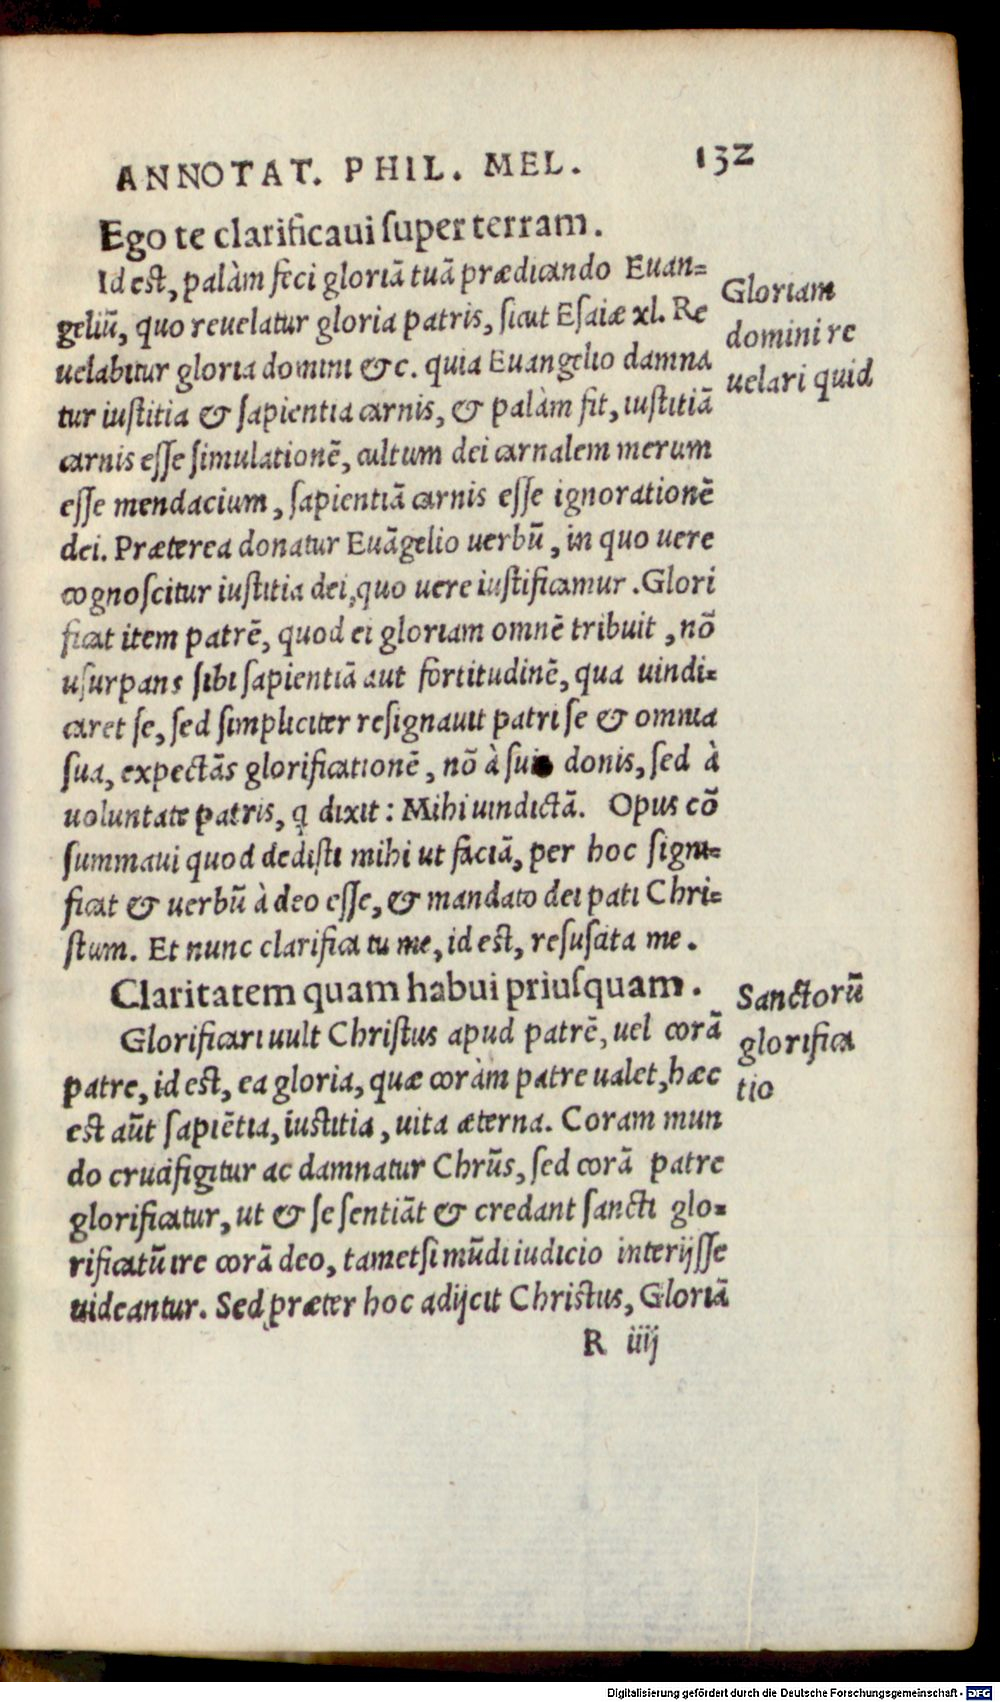 ANNOTAT. PHIL. MEL. 132
Ego te clarificaui ſuper terram.
Id est, palàm feci gloriā tuā prædicando Euan=
geliū, quo reuelatur gloria patris, ſicut Eſaiæ xl. Re
uelabitur gloria domini & c. quia Euangelio damna
tur iuſtitia & ſapientia carnis, & palàm fit, iuſtitiā
carnis eſſe ſimulationē, cultum dei carnalem merum
eſſe mendacium, ſapientiā carnis eſſe ignorationē
dei. Præterea donatur Euāgelio uerbū, in quo uere
cognoſcitur iuſtitia dei, quo uere iuſtificamur. Glori
ficat item patrē, quod ei gloriam omnē tribuit, nō
uſurpans ſibi ſapientiā aut fortitudinē, qua uindi=
caret ſe, ſed ſimpliciter reſignauit patri ſe & omnia
ſua, expectās glorificationē, nō à ſuis donis, ſed à
uoluntate patris, q dixit: Mihi uindictā. Opus cō
ſummaui quod dediſti mihi ut faciā, per hoc ſigni=
ficat & uerbū à deo eſſe, & mandato dei pati Chri=
ſtum. Et nunc clarifica tu me, id est, reſuſcita me.
Claritatem quam habui priuſquam.
Glorificari uult Chriſtus apud patrē, uel corā
patre, id est, ea gloria, quæ coràm patre ualet, hæc
est aūt ſapiētia, iustitia, uita æterna. Coram mun
do crucifigitur ac damnatur Chrūs, ſed corā patre
glorificatur, ut & ſe ſentiāt & credant ſancti glo=
rificatū ire corā deo, tametſi mūdi iudicio interijſſe
uideantur. Sed præter hoc adijcit Christus, Gloriā
R iiij
Gloriam
domini re
uelari quid
Sanctorū
glorifica
tio
Digitalisierung gefördert durch die Deutsche Forschungsgemeinschaft - DFG